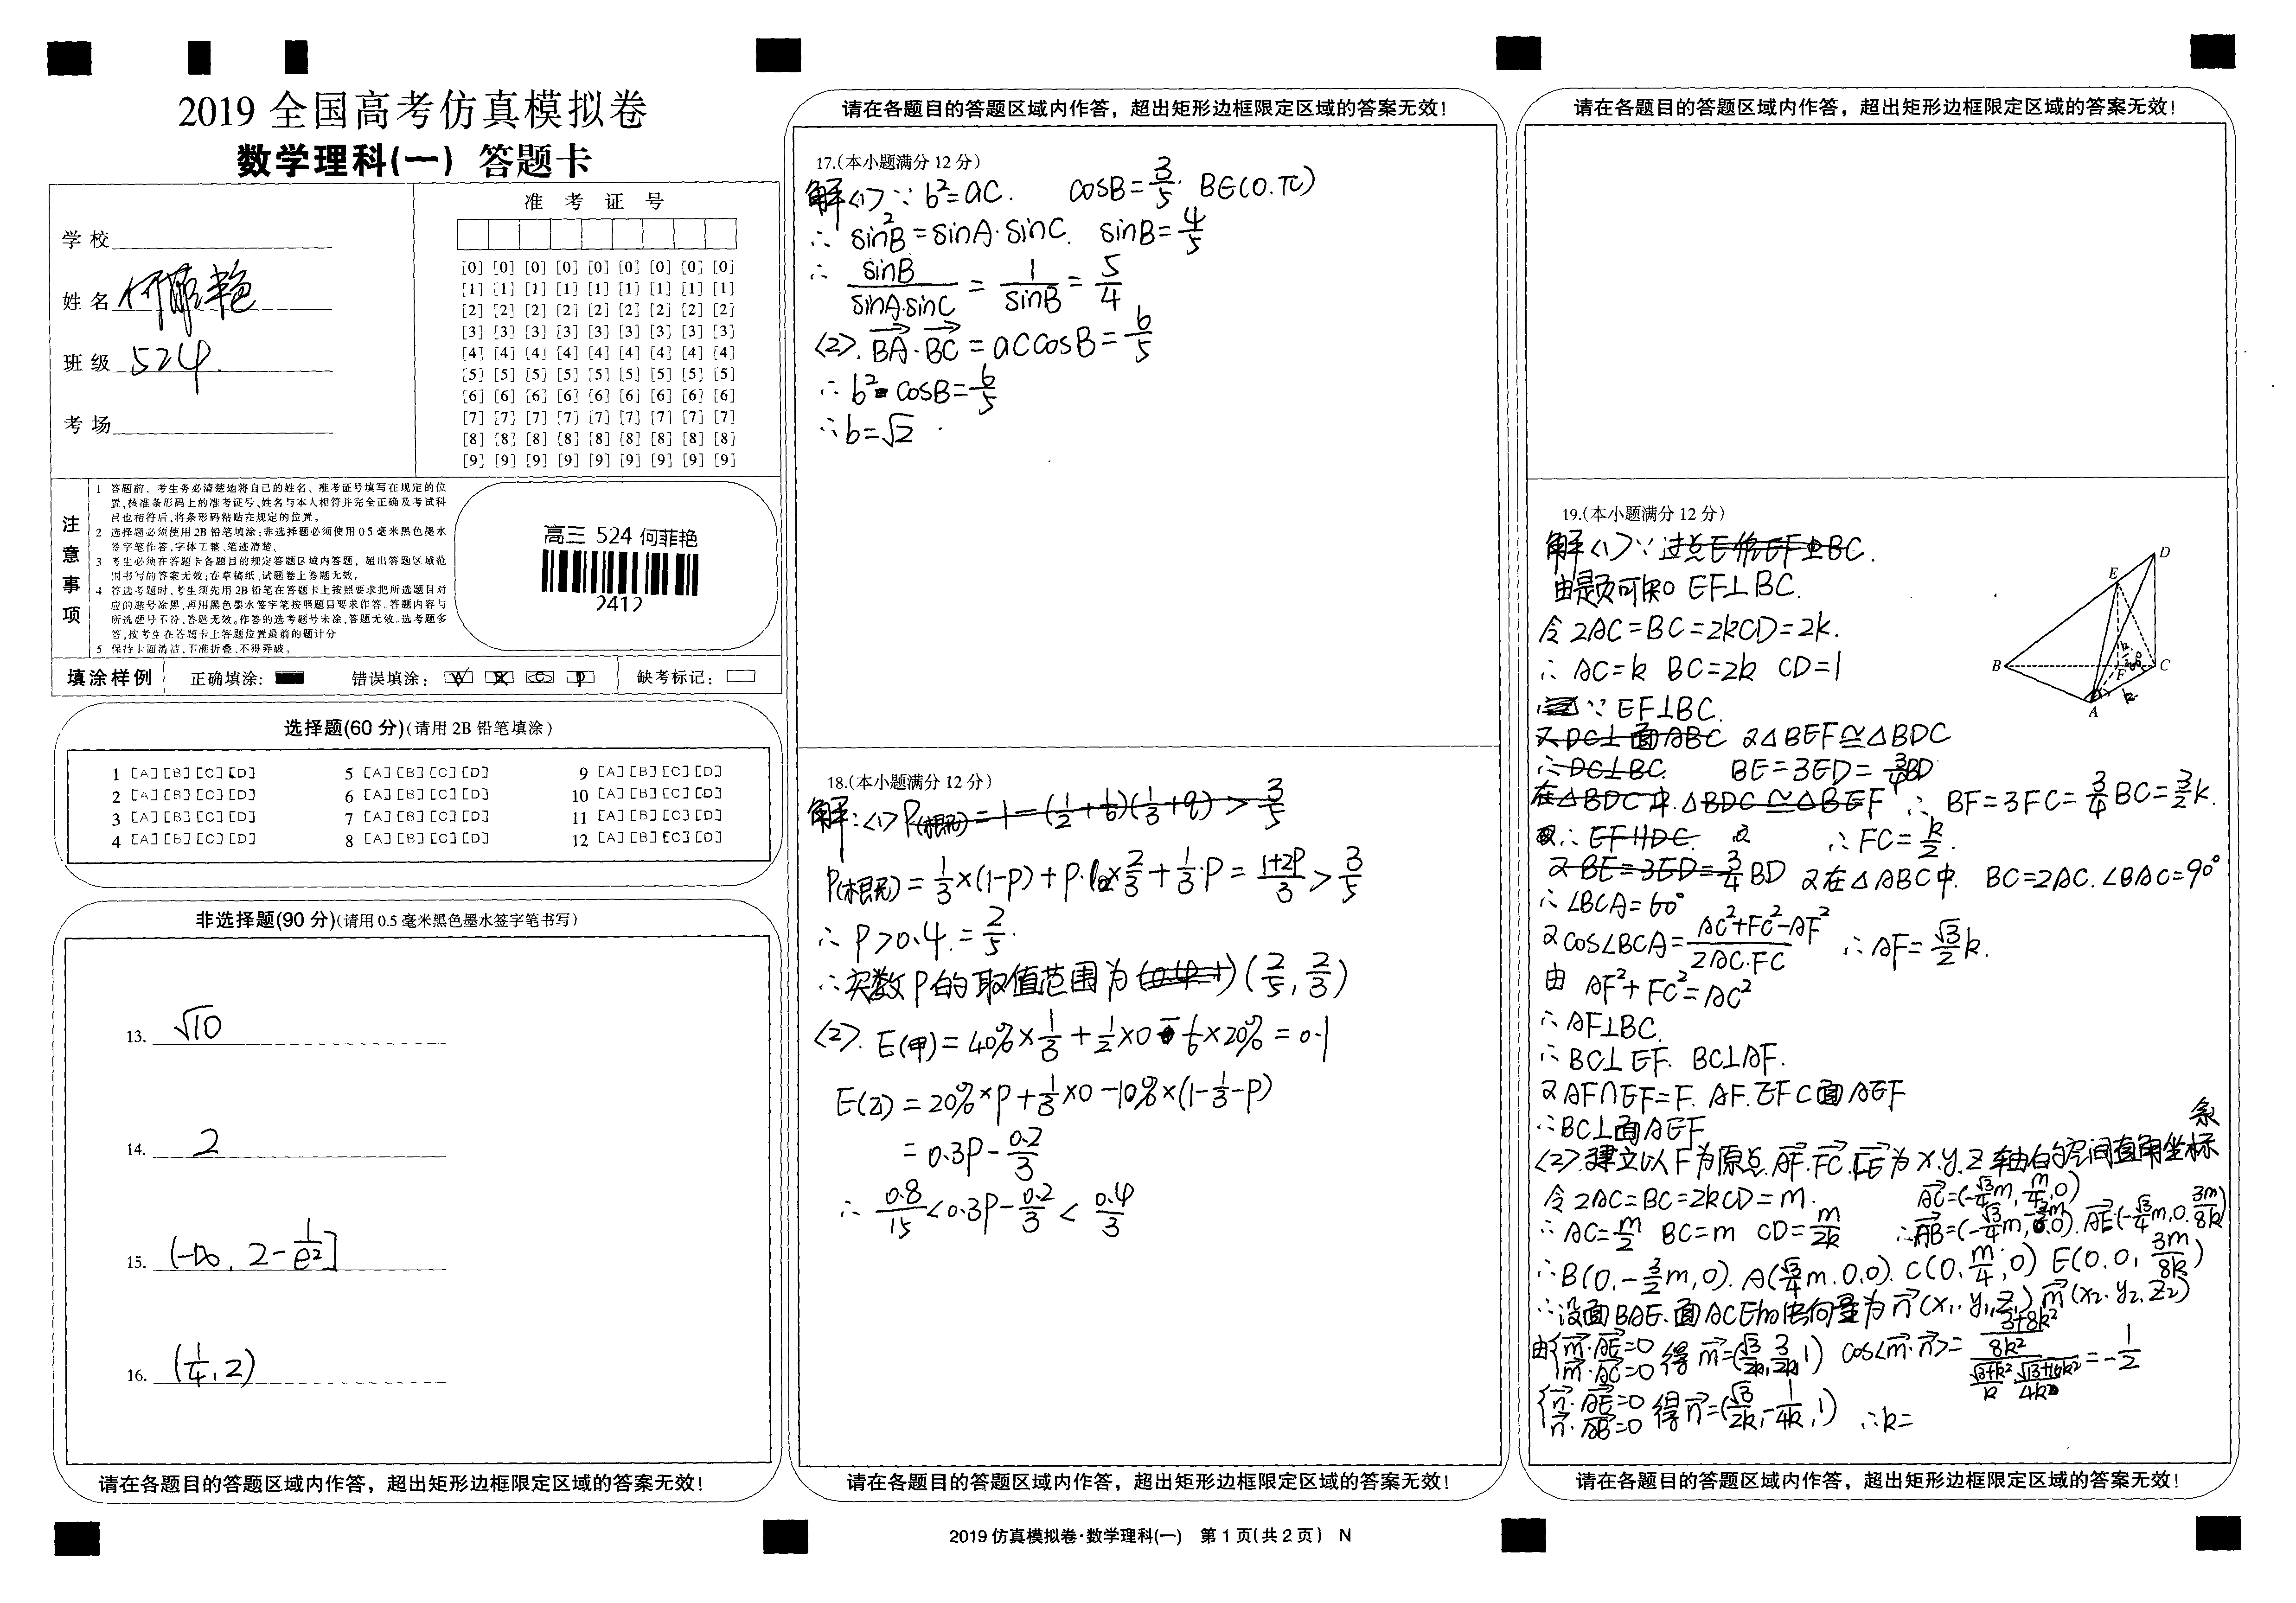 2019 全国高考仿真模拟卷
数学理科(一) 答题卡
学校
姓名 何菲艳
班级 524
考场
准考证号
[0] [0] [0] [0] [0] [0] [0] [0] [0]
[1] [1] [1] [1] [1] [1] [1] [1] [1]
[2] [2] [2] [2] [2] [2] [2] [2] [2]
[3] [3] [3] [3] [3] [3] [3] [3] [3]
[4] [4] [4] [4] [4] [4] [4] [4] [4]
[5] [5] [5] [5] [5] [5] [5] [5] [5]
[6] [6] [6] [6] [6] [6] [6] [6] [6]
[7] [7] [7] [7] [7] [7] [7] [7] [7]
[8] [8] [8] [8] [8] [8] [8] [8] [8]
[9] [9] [9] [9] [9] [9] [9] [9] [9]
注意事项
1 答题前，考生务必清楚地将自己的姓名、准考证号填写在规定的位
置,核准条形码上的准考证号、姓名与本人相符并完全正确及考试科
目也相符后,将条形码粘贴在规定的位置。
2 选择题必须使用2B铅笔填涂;非选择题必须使用05毫米黑色墨水
签字笔作答,字体工整、笔迹清楚。
3 考生必须在答题卡各题目的规定答题区域内答题，超出答题区域范
围书写的答案无效;在草稿纸、试题卷上答题无效。
4 答选考题时,考生须先用2B铅笔在答题卡上按照要求把所选题目对
应的题号涂黑,再用黑色墨水签字笔按照题目要求作答。答题内容与
所选题号不符,答题无效。作答的选考题号未涂,答题无效。选考题多
答,按考生在答题卡上答题位置最前的题计分
5 保持卡面清洁,不准折叠、不得弄破。
高三 524 何菲艳
2412
填涂样例 正确填涂: 错误填涂: 缺考标记:
选择题(60 分)(请用 2B 铅笔填涂)
1 [A][B][C][D] 5 [A][B][C][D] 9 [A][B][C][D]
2 [A][B][C][D] 6 [A][B][C][D] 10 [A][B][C][D]
3 [A][B][C][D] 7 [A][B][C][D] 11 [A][B][C][D]
4 [A][B][C][D] 8 [A][B][C][D] 12 [A][B][C][D]
非选择题(90 分)(请用 0.5 毫米黑色墨水签字笔书写)
13. √10
14. 2
15. (-∞, 2-1/e²]
16. (1/4, 2)
请在各题目的答题区域内作答，超出矩形边框限定区域的答案无效！
请在各题目的答题区域内作答，超出矩形边框限定区域的答案无效！
17.(本小题满分 12 分)
解<1>∵ b²=ac. cosB=3/5. B∈(0.π)
∴ sin²B=sinA·sinC. sinB=4/5
∴ sinB/(sinA·sinC) = 1/sinB = 5/4
<2>. BA·BC = accosB=6/5
∴ b² cosB=6/5
∴b=√2
18.(本小题满分 12 分)
解:<1> P(相亮)=1-(1/2+1/6)(1/3+q)>3/5
=1/3×(1-P)+P·×2/3+1/3·P=(1+2P)/3>3/5
∴ P>0.4.=2/5.
∴实数P的取值范围为 (2/5, 2/3)
<2>. E(甲)=40%×1/3+1/2×0-1/6×20%=0.1
E(乙)=20%×P+1/3×0-10%×(1-1/3-P)
=0.3P-0.2/3
∴ 0.8/15<0.3P-0.2/3<0.4/3
请在各题目的答题区域内作答，超出矩形边框限定区域的答案无效！
请在各题目的答题区域内作答，超出矩形边框限定区域的答案无效！
19.(本小题满分 12 分)
解<1>∵ 过点E作EF⊥BC.
由题可知 EF⊥BC.
令 2AC=BC=2kCD=2k.
∴ AC=k BC=2k CD=1
∵ EF⊥BC.
又DC⊥面ABC 又△BEF≅△BDC
∴DC⊥BC. BE=3ED=3/4BD
在△BDC中.△BDC≅△BEF ∴ BF=3FC=3/4BC=3/2k.
∴ EF∥DC. ∴FC=k/2.
又BE=3ED=3/4BD 又在△ABC中. BC=2AC.∠BAC=90°
∴∠BCA=60°
又cos∠BCA=(AC²+FC²-AF²)/(2AC·FC) ∴AF=√3/2k.
由 AF²+FC²=AC²
∴AF⊥BC.
∴BC⊥EF. BC⊥AF.
又AF∩EF=F. AF.EF⊂面AEF
∴BC⊥面AEF
<2>.建立以F为原点.AF.FC.FE为X.Y.Z轴的空间直角坐标系
令2AC=BC=2kCD=m. AC=(-√3/4m, m/4, 0)
∴AC=m/2 BC=m CD=m/2k
∴B(0,-3/2m,0). A(√3/4m.0.0). C(0,m/4,0) E(0.0,3m/8k)
∴设面BAE.面ACE的法向量为n(x₁.y₁,z₁) m(x₂.y₂,z₂)
由{m·AE=0 m·AC=0 得 m=(√3/2k,3/2k,1) cos<m·n>=((3+8k²)/8k²)/(√(3+k²)/k·√(13+16k²)/4k)=-1/2
{n·AE=0 n·AB=0 得n=(√3/2k,-1/4k,1) ∴k=
D
E
B
C
F
A
k
请在各题目的答题区域内作答，超出矩形边框限定区域的答案无效！
2019 仿真模拟卷·数学理科(一) 第 1 页(共 2 页) N